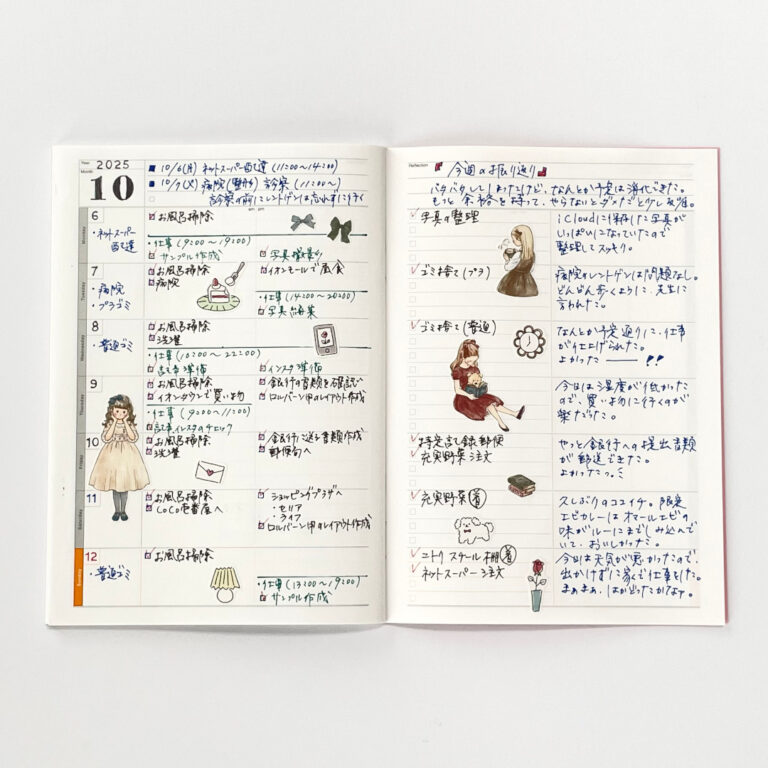 Year
Month
2025
10
■ 10/6(月) ネットスーパー配達 (11:00〜14:00)
■ 10/7(火) 病院(整形) 診察 (11:00〜)
診察の前にレントゲンは忘れずに行く
am pm
6
Monday
・ネットスーパー
配達
お風呂掃除
・仕事(9:00〜19:00)
サンプル作成
写真撮影
7
Tuesday
・病院
・プラゴミ
お風呂掃除
病院
イオンモールで昼食
・仕事(14:00〜20:00)
写真編集
8
Wednesday
・普通ゴミ
お風呂掃除
洗濯
・仕事(10:00〜22:00)
記事準備
インスタ準備
9
Thursday
お風呂掃除
イオンタウンで買い物
・仕事(9:00〜11:00)
記事、インスタのチェック
銀行の書類を確認
ロルバーン中のレイアウト作成
10
お風呂掃除
洗濯
銀行に送る書類作成
郵便局へ
11
Saturday
お風呂掃除
CoCo壱番屋へ
ショッピングプラザへ
・セリア
・ライフ
ロルバーン中のレイアウト作成
12
Sunday
・普通ゴミ
お風呂掃除
・仕事(13:00〜19:00)
サンプル作成
Reflection
『今週の振り返り』
バタバタしてしまったけど、なんとか予定は消化できた。
もっと余裕を持って、やらないとダメだと少し反省。
写真の整理
iCloudに保存した写真が
いっぱいになっていたので
整理してスッキリ。
ゴミ捨て(プラ)
病院のレントゲンは問題なし。
どんどん歩くように、先生に
言われた。
ゴミ捨て(普通)
なんとか予定通りに、仕事
が仕上げられた。
よかった ――!!
今日は湿度が低かった
ので、買い物に行くのが
楽だった。
特定記録郵便
充実野菜 注文
やっと銀行への提出書類
が郵送できた。
よかったっ。
充実野菜 着
久しぶりのココイチ。限定
エビカレーはオマールエビの
味がルーにまでしみ込んで
いて、おいしかった。
ニトリ スチール棚 着
ネットスーパー注文
今日は天気が悪かったので、
出かけずに家で仕事をした。
まぁまぁ、はかどったかなァ。